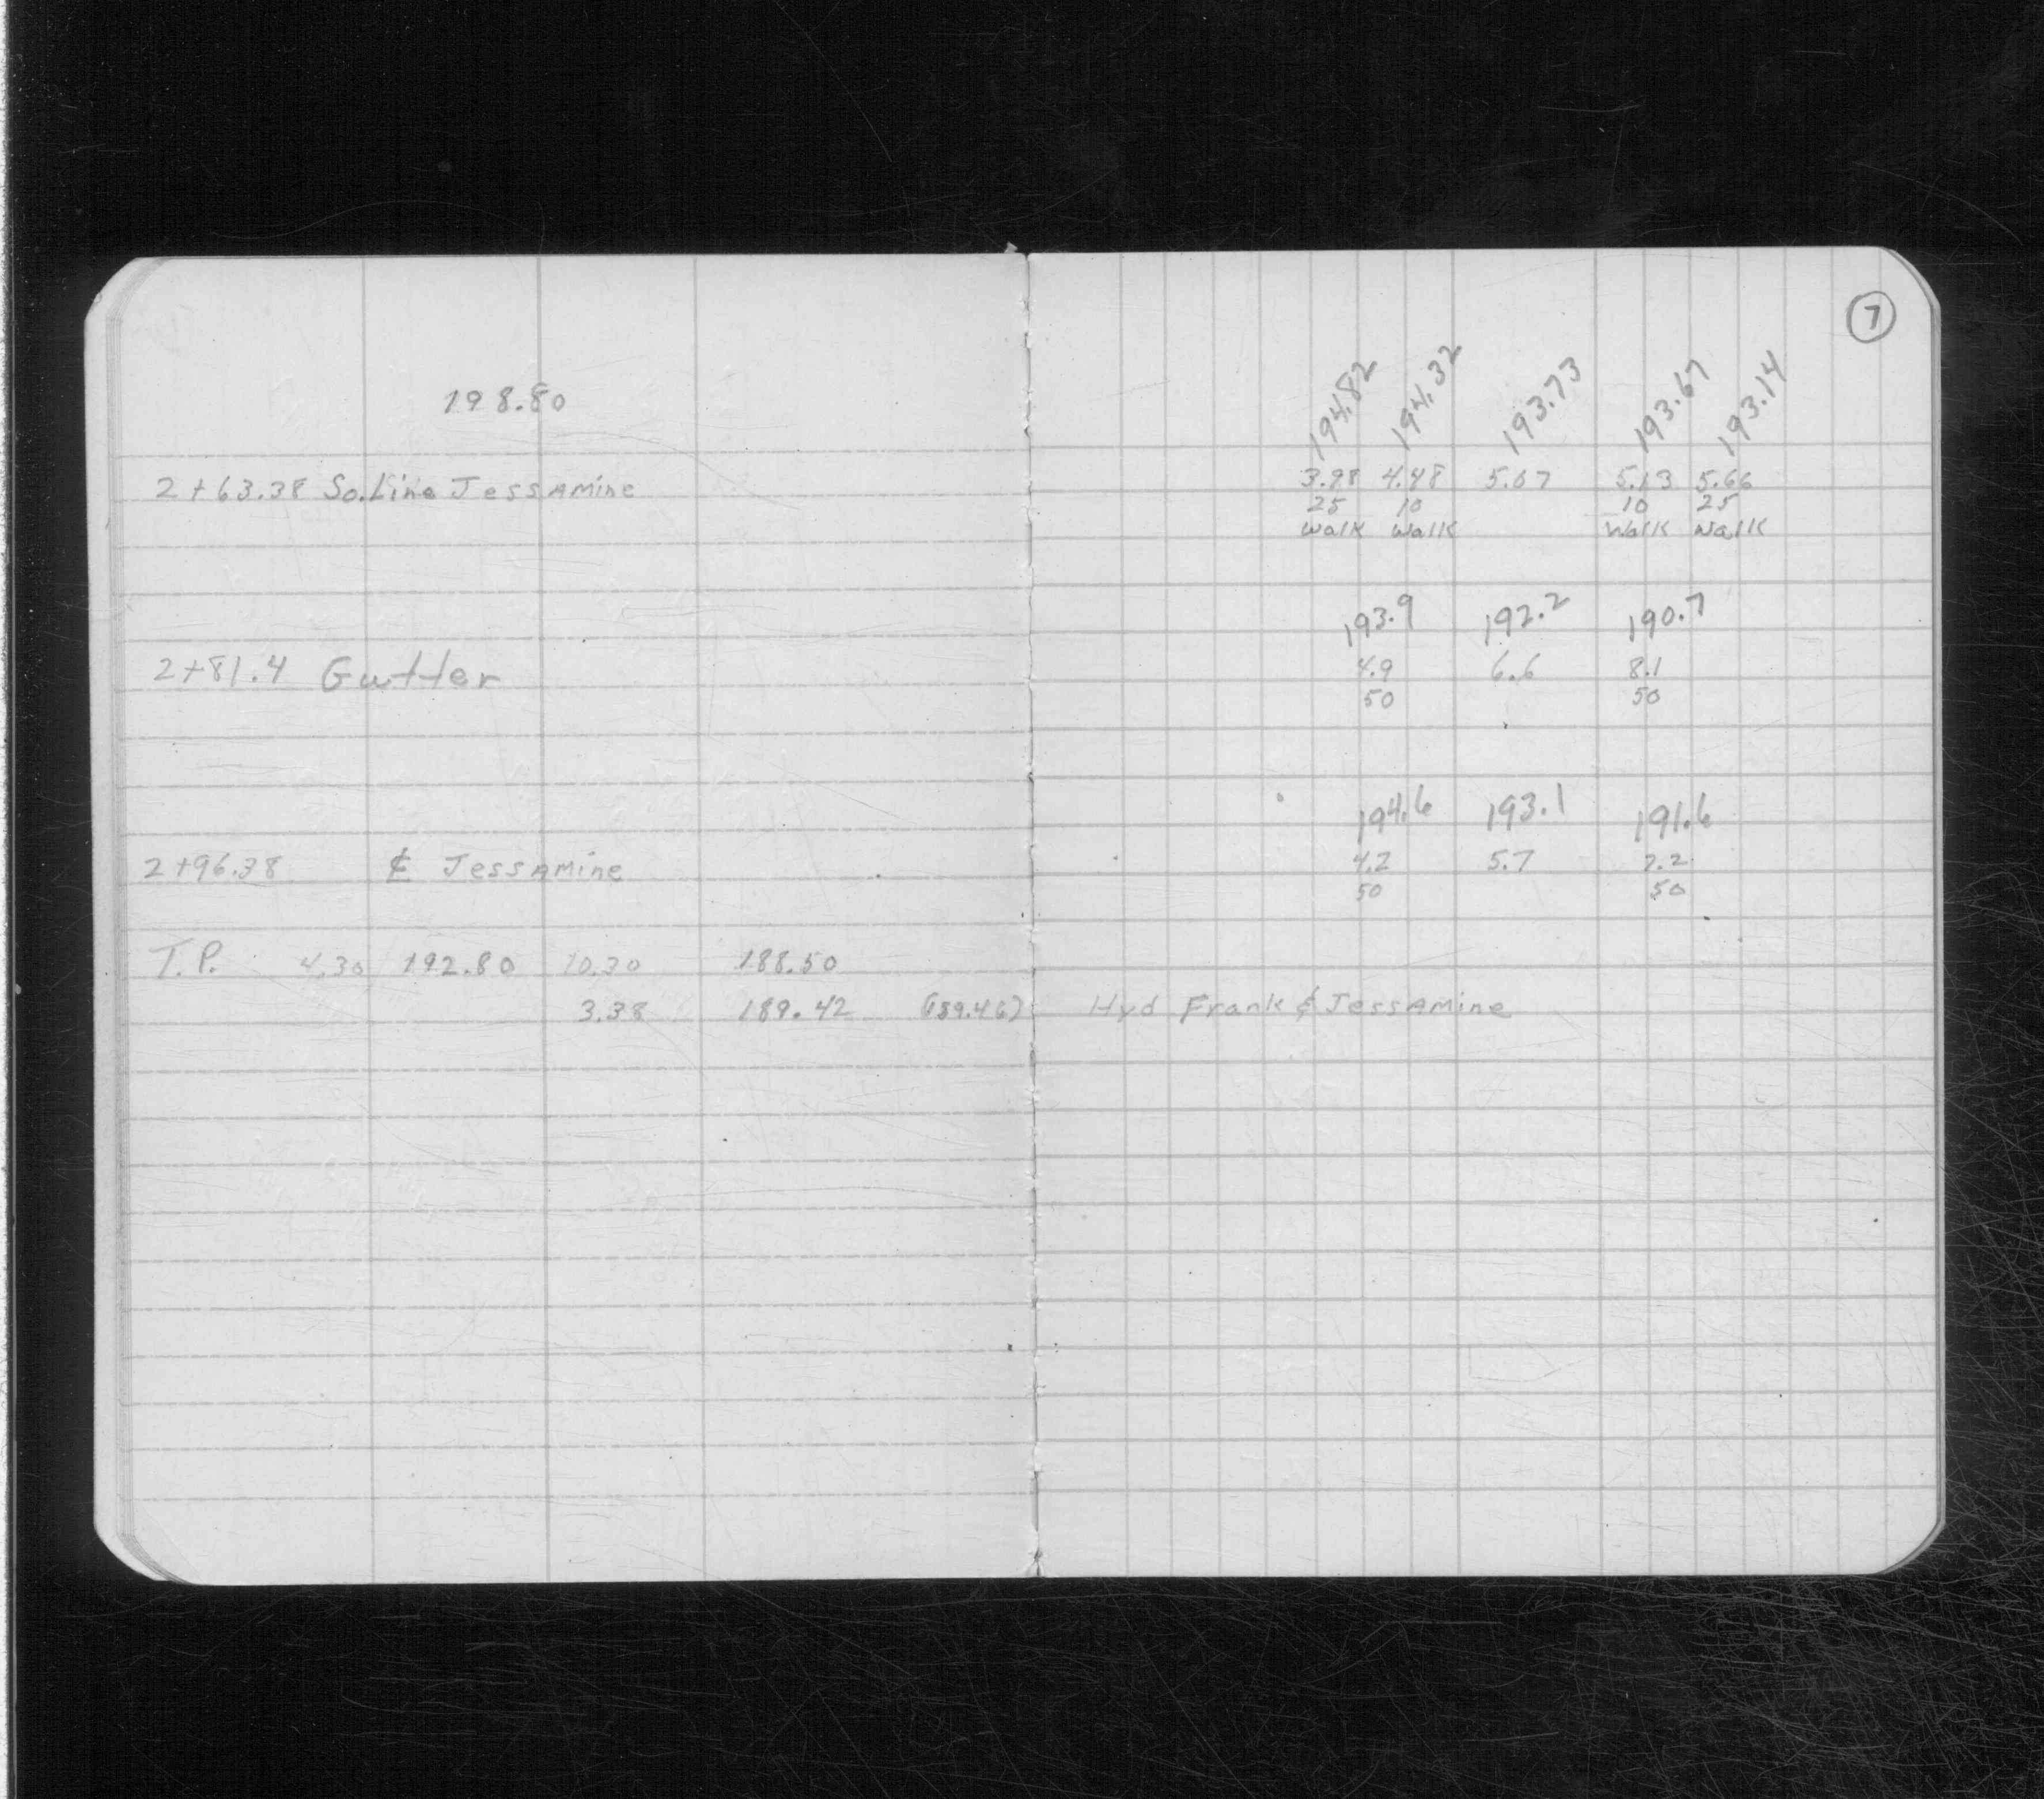 198.80
2+63.38 So.Line Jessamine
2+81.4 Gutter
2+96.38 ℄ Jessamine
T.P. 4.30 192.80 10.30 188.50
3.38 189.42 (189.46)
7
194.82 194.32 193.73 193.67 193.14
3.98 4.48 5.07 5.13 5.66
25 10 10 25
Walk Walk Walk Walk
193.9 192.2 190.7
4.9 6.6 8.1
50 50
194.6 193.1 191.6
4.2 5.7 7.2
50 50
Hyd Frank & Jessamine